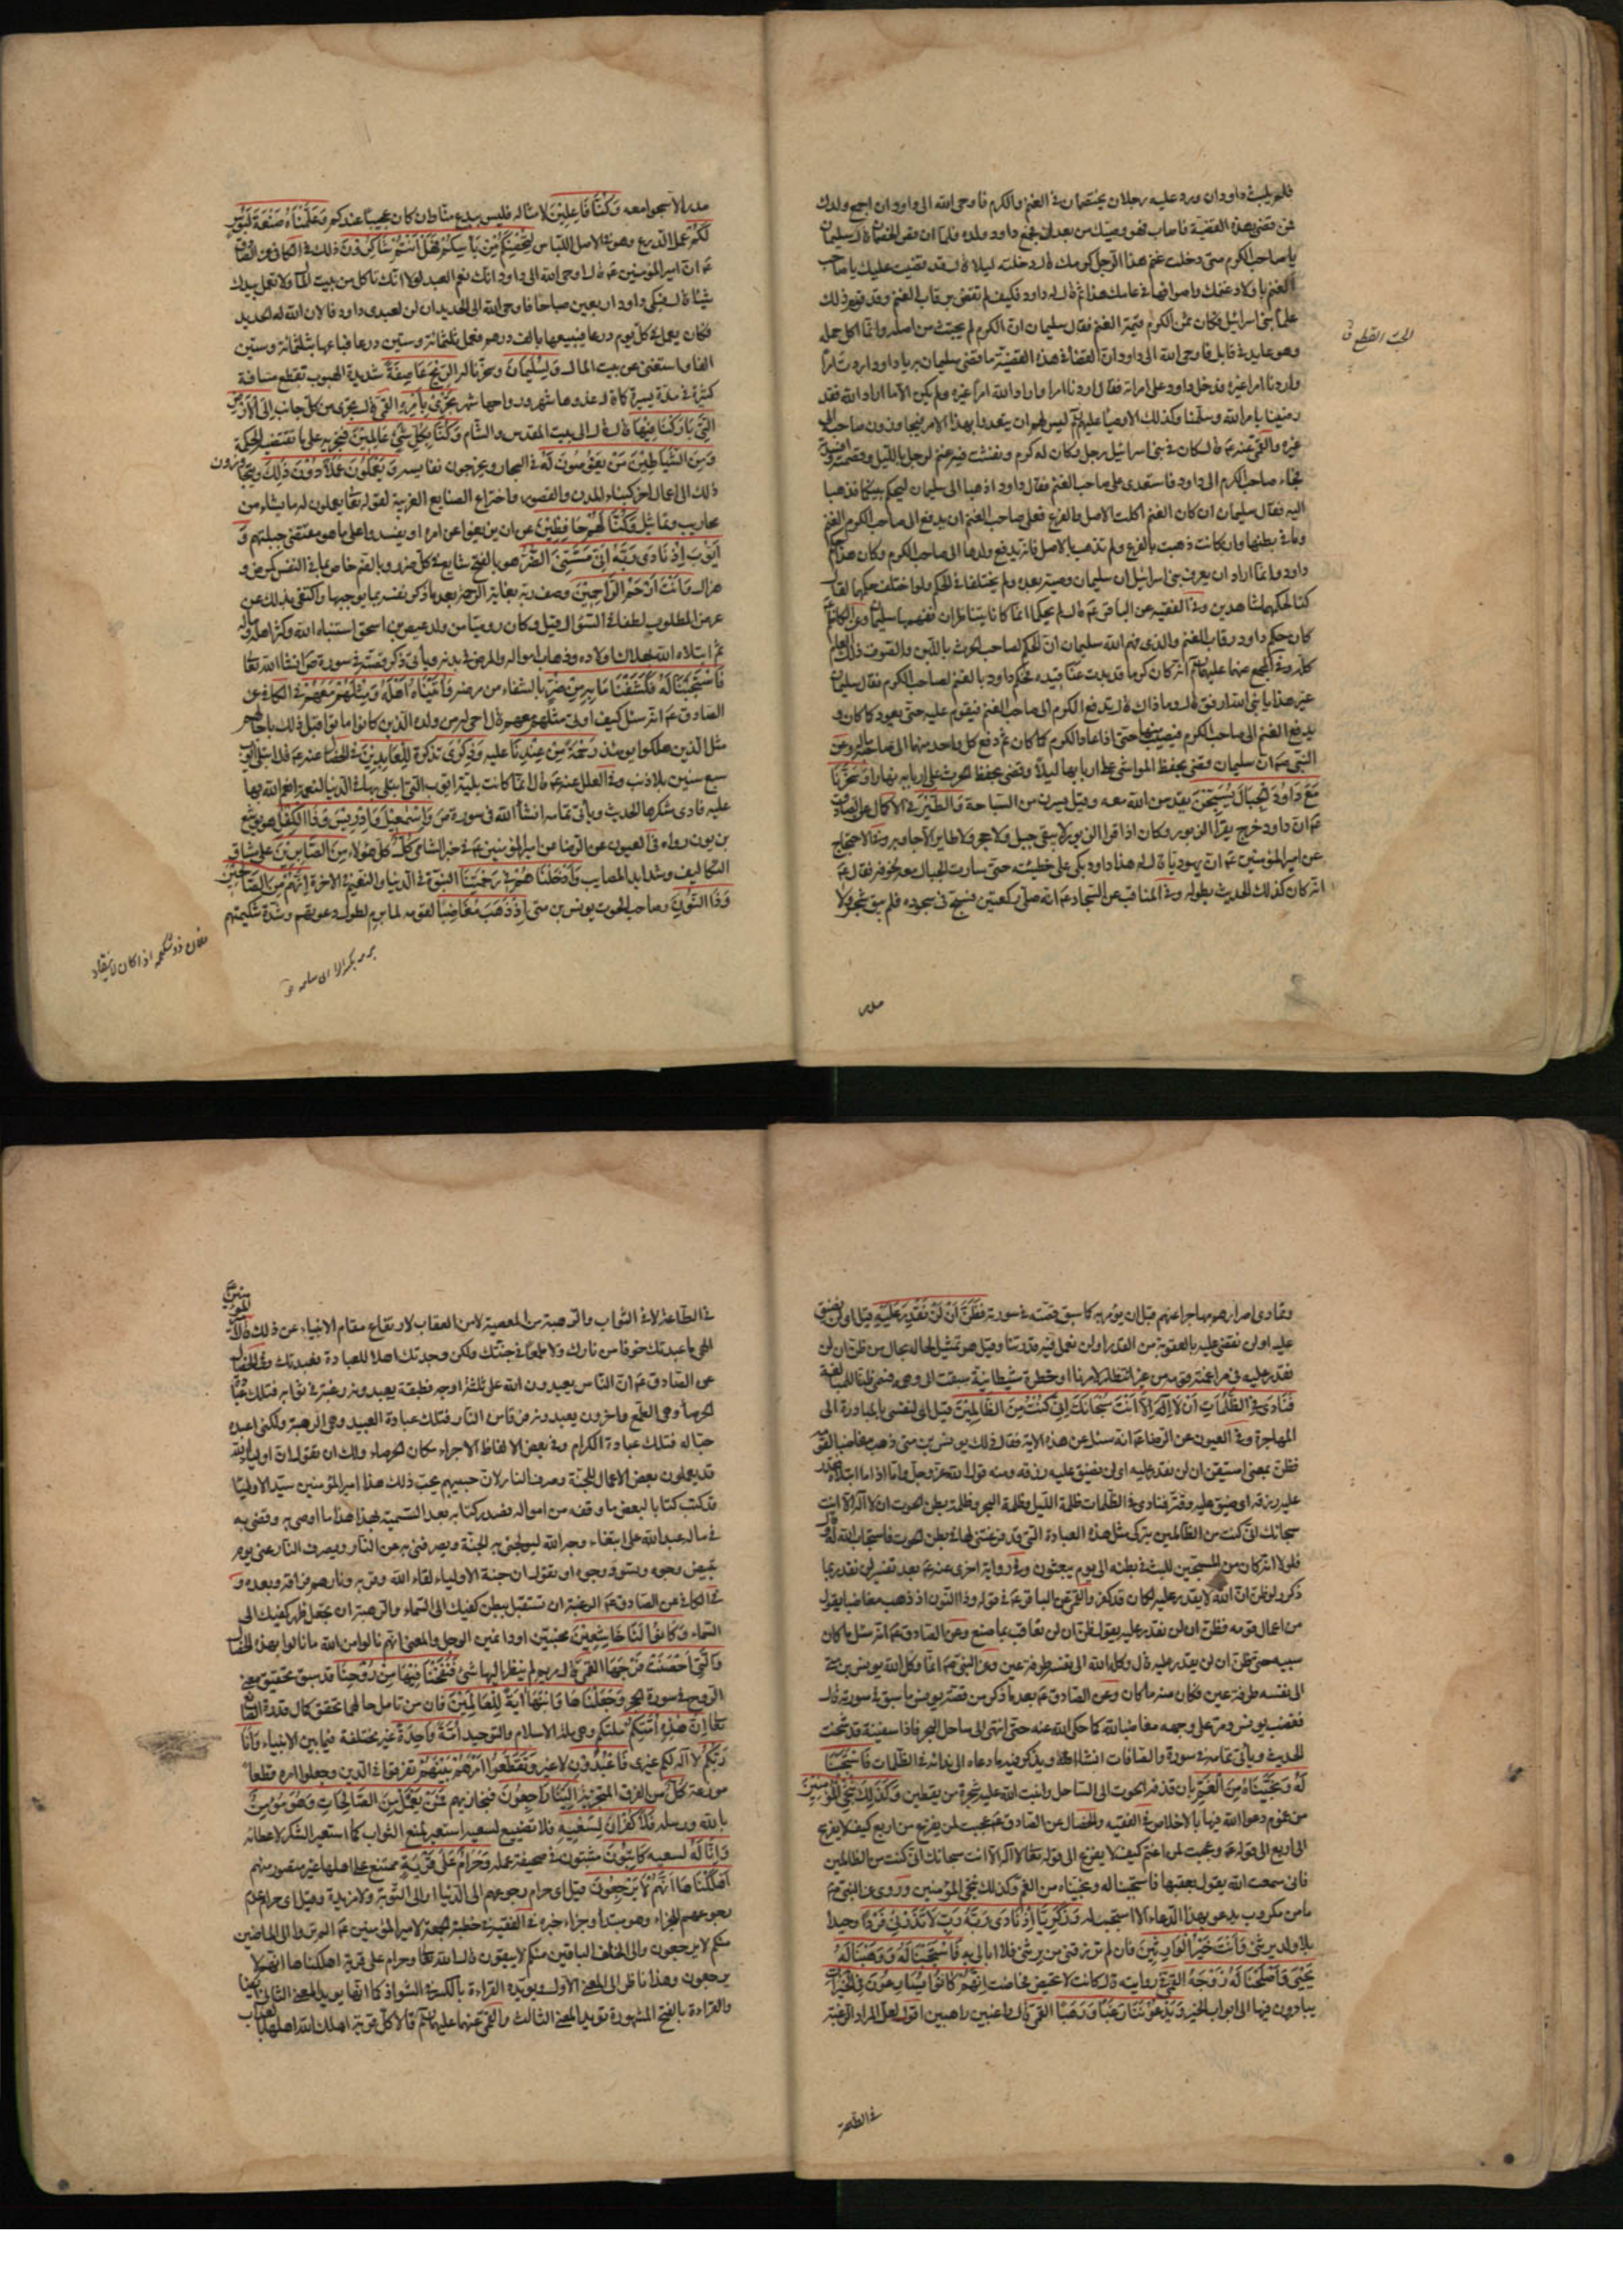 فلم يلبث داود ان ورد عليه رجلان يختصمان في الغنم والكرم فاوحى الله الى داود ان اجمع ولدك
فمن قضى بهذه القضية فاصاب فهو وصيك من بعدك فجمع داود ولده فلما ان قص الخصمان قال سليمان
يا صاحب الكرم متى دخلت غنم هذا الرجل كرمك قال دخلته ليلا قال قد قضيت عليك يا صاحب
الغنم باولاد غنمك واصوافها في عامك هذا ثم قال له داود فكيف لم تقض برقاب الغنم وقد قوم ذلك
علماء بني اسرائيل فكان ثمن الكرم قيمة الغنم فقال سليمان ان الكرم لم يجتث من اصله وانما اكل حمله
وهو عايد في قابل فاوحى الله الى داود ان القضاء في هذه القضية ما قضى سليمان به يا داود اردت امرا
واردنا امرا غيره فدخل داود على امراته فقال اردنا امرا واراد الله امرا غيره ولم يكن الا ما اراد الله فقد
رضينا بامر الله وسلمنا وكذلك الاوصياء عليهم ليس لهم ان يتعدوا بهذا الامر فيجاوزون صاحبه الى
غيره والقمي عنه ع قال كان في بني اسرائيل رجل وكان له كرم ونفشت فيه غنم لرجل بالليل وقضمته وافسدته
فجاء صاحب الكرم الى داود فاستعدى على صاحب الغنم فقال داود اذهبا الى سليمان ليحكم بينكما فذهبا
اليه فقال سليمان ان كان الغنم اكلت الاصل والفرع فعلى صاحب الغنم ان يدفع الى صاحب الكرم الغنم
وما في بطنها وان كانت ذهبت بالفرع ولم تذهب بالاصل فانه يدفع ولدها الى صاحب الكرم وكان هذا حكم
داود وانما اراد ان يعرف بني اسرائيل ان سليمان وصيه بعده ولم يختلفا في الحكم ولو اختلف حكمهما لقال
كنا لحكمهما شاهدين وفي الفقيه عن الباقر ع قال لم يحكما انما كانا يتناظران ففهمها سليمان وعن الكاظم
كان حكم داود رقاب الغنم والذي فهم الله سليمان ان الحكم لصاحب الحرث باللبن والصوف ذلك العام
كله وفي المجمع عنهما عليهما انه كان كرما قد بدت عناقيده فحكم داود بالغنم لصاحب الكرم فقال سليمان
غير هذا يا نبي الله ارفق قال وما ذاك قال تدفع الكرم الى صاحب الغنم فيقوم عليه حتى يعود كما كان و
يدفع الغنم الى صاحب الكرم فيصيب منها حتى اذا عاد الكرم كما كان ثم دفع كل واحد منهما الى صاحبه ماله وعن
النبي ص ان سليمان قضى بحفظ المواشي على اربابها ليلا وقضى بحفظ الحرث على اربابه نهارا وَسَخَّرْنَا
مَعَ دَاوُدَ الْجِبَالَ يُسَبِّحْنَ يقدسن الله معه وقيل يسرن من السباحة وَالطَّيْرَ في الاكمال عن الصادق
ع ان داود خرج يقرأ الزبور وكان اذا قرأ الزبور لا يبقى جبل ولا حجر ولا طاير الا جاوبه وفي الاحتجاج
عن امير المؤمنين ع ان يهوديا قال له هذا داود بكى على خطيئته حتى سارت الجبال معه لخوفه فقال ع
انه كان كذلك الحديث بطوله وفي المناقب عن السجاد ع انه صلى ركعتين فسبح في سجوده فلم يبق شجر ولا
الجث القطع ق
مدر الا سبحوا معه وَكُنَّا فَاعِلِينَ لامثاله فليس ببدع منا وان كان عجيبا عندكم وَعَلَّمْنَاهُ صَنْعَةَ لَبُوسٍ
لَكُمْ عمل الدرع وهو في الاصل اللباس لِتُحْصِنَكُمْ مِنْ بَأْسِكُمْ فَهَلْ أَنْتُمْ شَاكِرُونَ ذلك في الكافي عن الصادق
ع ان امير المؤمنين ع قال اوحى الله الى داود انك نعم العبد لولا انك تاكل من بيت المال ولا تعمل بيدك
شيئا قال فبكى داود اربعين صباحا فاوحى الله الى الحديد ان لن لعبدي داود فالان الله له الحديد
فكان يعمل كل يوم درعا فيبيعها بالف درهم فعمل ثلثمائة وستين درعا فباعها بثلثمائة وستين
الفا واستغنى عن بيت المال وَلِسُلَيْمَانَ وسخرنا له الرِّيحَ عَاصِفَةً شديدة الهبوب تقطع مسافة
كثيرة في مدة يسيرة كما قال غدوها شهر ورواحها شهر تَجْرِي بِأَمْرِهِ القمي قال تجري من كل جانب إِلَى الْأَرْضِ
الَّتِي بَارَكْنَا فِيهَا قال الى بيت المقدس والشام وَكُنَّا بِكُلِّ شَيْءٍ عَالِمِينَ فنجريه على ما تقتضيه الحكمة
وَمِنَ الشَّيَاطِينِ مَنْ يَغُوصُونَ لَهُ في البحار ويخرجون نفايسه وَيَعْمَلُونَ عَمَلًا دُونَ ذَلِكَ ويتجاوزون
ذلك الى اعمال اخر كبناء المدن والقصور واختراع الصنايع الغريبة لقوله تعالى يعملون له ما يشاء من
محاريب وتماثيل وَكُنَّا لَهُمْ حَافِظِينَ عن ان يزيغوا عن امره او يفسدوا على ما هو مقتضى جبلتهم وَ
أَيُّوبَ إِذْ نَادَى رَبَّهُ أَنِّي مَسَّنِيَ الضُّرُّ هو بالفتح شايع في كل ضرر وبالضم خاص بما في النفس كمرض و
هزال وَأَنْتَ أَرْحَمُ الرَّاحِمِينَ وصف ربه بغاية الرحمة بعد ما ذكر نفسه بما يوجبها واكتفى بذلك عن
عرض المطلوب لطفا في السؤال قيل وكان روميا من ولد عيص بن اسحق استنبأه الله وكثر اهله وماله
ثم ابتلاه الله بهلاك اولاده وذهاب امواله والمرض في بدنه وياتي ذكر قصته في سورة ص انشاء الله تعالى
فَاسْتَجَبْنَا لَهُ فَكَشَفْنَا مَا بِهِ مِنْ ضُرٍّ بالشفاء من مرضه وَآتَيْنَاهُ أَهْلَهُ وَمِثْلَهُمْ مَعَهُمْ في الكافي عن
الصادق ع انه سئل كيف اوتي مثلهم معهم قال احيى له من ولده الذين كانوا ماتوا قبل ذلك باجالهم
مثل الذين هلكوا يومئذ رَحْمَةً مِنْ عِنْدِنَا عليه وَذِكْرَى تذكرة لِلْعَابِدِينَ في الخصال عنه ع قال ابتلي ايوب
سبع سنين بلا ذنب وفي العلل عنه ع قال انما كانت بلية ايوب التي ابتلي بها في الدنيا لنعمة انعم الله بها
عليه فادى شكرها الحديث وياتي تمامه انشاء الله في سورة ص وَإِسْمَعِيلَ وَإِدْرِيسَ وَذَا الْكِفْلِ هو يوشع
بن نون رواه في العيون عن الرضا عن امير المؤمنين ع في خبر الشامي كُلٌّ كل هؤلاء مِنَ الصَّابِرِينَ على مشاق
التكاليف وشدايد المصايب وَأَدْخَلْنَاهُمْ فِي رَحْمَتِنَا النبوة في الدنيا والنعيم في الاخرة إِنَّهُمْ مِنَ الصَّالِحِينَ
وَذَا النُّونِ وصاحب الحوت يونس بن متى إِذْ ذَهَبَ مُغَاضِبًا لقومه لما برم لطول دعوتهم وشدة شكيمتهم
فلان ذو شكيمة اذا كان لا ينقاد
وتمادي اصرارهم مهاجرا عنهم قبل ان يؤمر به كما سبق قصته في سورته فَظَنَّ أَنْ لَنْ نَقْدِرَ عَلَيْهِ قيل اي لن نضيق
عليه او لن نقضي عليه بالعقوبة من القدر او لن نعمل فيه قدرتنا وقيل هو تمثيل لحاله بحال من ظن ان لن
نقدر عليه في مراغمته قومه من غير انتظار لامرنا او خطرة شيطانية سبقت الى وهمه فسمي ظنا للمبالغة
فَنَادَى فِي الظُّلُمَاتِ أَنْ لَا إِلَهَ إِلَّا أَنْتَ سُبْحَانَكَ إِنِّي كُنْتُ مِنَ الظَّالِمِينَ قيل اي لنفسي بالمبادرة الى
المهاجرة وفي العيون عن الرضا ع انه سئل عن هذه الاية فقال ذلك يونس بن متى ذهب مغاضبا لقومه
فظن بمعنى استيقن ان لن نقدر عليه اي لن نضيق عليه رزقه ومنه قول الله عز وجل واما اذا ما ابتلاه فقدر
عليه رزقه اي ضيق عليه وقتر فنادى في الظلمات ظلمة الليل وظلمة البحر وظلمة بطن الحوت ان لا اله الا انت
سبحانك اني كنت من الظالمين بتركي مثل هذه العبادة التي قد فرغتني لها في بطن الحوت فاستجاب الله له وقال
فلولا انه كان من المسبحين للبث في بطنه الى يوم يبعثون وفي رواية اخرى عنه ع بعد تفسير لن نقدر بما
ذكر ولو ظن ان الله لا يقدر عليه لكان قد كفر والقمي عن الباقر ع في قوله وذا النون اذ ذهب مغاضبا يقول
من اعمال قومه فظن ان لن نقدر عليه يقول ظن ان لن نعاقب بما صنع وعن الصادق ع انه سئل ما كان
سببه حتى ظن ان لن يقدر عليه قال وكله الله الى نفسه طرفة عين وعن النبي ص انما وكل الله يونس بن متى
الى نفسه طرفة عين فكان منه ما كان وعن الصادق ع بعد ما ذكر من قصة يونس ما سبق في سورته قال
فغضب يونس ومر على وجهه مغاضبا لله كما حكى الله عنه حتى انتهى الى ساحل البحر فاذا سفينة قد شحنت
الحديث وياتي تمامه في سورة والصافات انشاء الله ويذكر فيه ما دعاه الى ندائه في الظلمات فَاسْتَجَبْنَا
لَهُ وَنَجَّيْنَاهُ مِنَ الْغَمِّ بان قذفه الحوت الى الساحل وانبت الله عليه شجرة من يقطين وَكَذَلِكَ نُنْجِي الْمُؤْمِنِينَ
من غموم دعوا الله فيها بالاخلاص في الفقيه والخصال عن الصادق ع عجبت لمن يفزع من اربع كيف لا يفزع
الى اربع الى قوله ع وعجبت لمن اغتم كيف لا يفزع الى قوله تعالى لا اله الا انت سبحانك اني كنت من الظالمين
فاني سمعت الله يقول بعقبها فاستجبنا له ونجيناه من الغم وكذلك ننجي المؤمنين وروي عن النبي ص
ما من مكروب يدعو بهذا الدعاء الا استجيب له وَزَكَرِيَّا إِذْ نَادَى رَبَّهُ رَبِّ لَا تَذَرْنِي فَرْدًا وحيدا
بلا ولد يرثني وَأَنْتَ خَيْرُ الْوَارِثِينَ فان لم ترزقني من يرثني فلا ابالي به فَاسْتَجَبْنَا لَهُ وَوَهَبْنَا لَهُ
يَحْيَى وَأَصْلَحْنَا لَهُ زَوْجَهُ القمي روايته قال كانت لا تحيض فحاضت إِنَّهُمْ كَانُوا يُسَارِعُونَ فِي الْخَيْرَاتِ
يبادرون فيها الى ابواب الخير وَيَدْعُونَنَا رَغَبًا وَرَهَبًا القمي قال راغبين راهبين اقول لعل المراد الرغبة
في الطاعة
في الطاعة لا في الثواب والرهبة من المعصية لا من العقاب لارتفاع مقام الانبياء عن ذلك قال امير المؤمنين
الهي ما عبدتك خوفا من نارك ولا طمعا في جنتك ولكن وجدتك اهلا للعبادة فعبدتك وفي الخصال
عن الصادق ع ان الناس يعبدون الله على ثلثة اوجه فطبقة يعبدونه رغبة في ثوابه فتلك عبادة
الحرصاء وهي الطمع واخرون يعبدونه فرقا من النار فتلك عبادة العبيد وهي الرهبة ولكني اعبده
حبا له فتلك عبادة الكرام وفي بعض الالفاظ الاجراء مكان الحرصاء ولك ان تقول ان اولياء الله
قد يعملون بعض الاعمال للجنة وصرف النار لان حبيبهم يحب ذلك هذا امير المؤمنين سيد الاولياء
قد كتب كتابا لبعض ما وقفه من امواله فصدر كتابه بعد التسمية بهذا هذا ما اوصى به وقضى به
في ماله عبد الله علي ابتغاء وجه الله ليولجني به الجنة ويصرفني به عن النار ويصرف النار عني يوم
تبيض وجوه وتسود وجوه او نقول ان جنة الاولياء لقاء الله وقربه ونارهم فراقه وبعده و
في الكافي عن الصادق ع الرغبة ان تستقبل ببطن كفيك الى السماء والرهبة ان تجعل ظهر كفيك الى
السماء وَكَانُوا لَنَا خَاشِعِينَ مخبتين او دائمين الوجل والمعنى انهم نالوا من الله ما نالوا بهذه الخصال
وَالَّتِي أَحْصَنَتْ فَرْجَهَا القمي قال مريم لم ينظر اليها شيء فَنَفَخْنَا فِيهَا مِنْ رُوحِنَا قد سبق تحقيق معنى
الروح في سورة الحجر وَجَعَلْنَاهَا وَابْنَهَا آيَةً لِلْعَالَمِينَ فان من تامل حالهما تحقق كمال قدرة الصانع
تعالى إِنَّ هَذِهِ أُمَّتُكُمْ ملتكم وهي ملة الاسلام والتوحيد أُمَّةً وَاحِدَةً غير مختلفة فيما بين الانبياء وَأَنَا
رَبُّكُمْ لا اله لكم غيري فَاعْبُدُونِ لا غير وَتَقَطَّعُوا أَمْرَهُمْ بَيْنَهُمْ تفرقوا في الدين وجعلوا امره قطعا
موزعة كُلٌّ من الفرق المتحزبة إِلَيْنَا رَاجِعُونَ فنجازيهم فَمَنْ يَعْمَلْ مِنَ الصَّالِحَاتِ وَهُوَ مُؤْمِنٌ
بالله ورسله فَلَا كُفْرَانَ لِسَعْيِهِ فلا تضييع لسعيه استعير لمنع الثواب كما استعير الشكر لاعطائه
وَإِنَّا لَهُ لسعيه كَاتِبُونَ مثبتون في صحيفة عمله وَحَرَامٌ عَلَى قَرْيَةٍ ممتنع على اهلها غير متصور منهم
أَهْلَكْنَاهَا أَنَّهُمْ لَا يَرْجِعُونَ قيل اي حرام رجوعهم الى الدنيا او الى التوبة ولا مزيدة وقيل اي حرام عدم
رجوعهم للجزاء وهو مبتدأ وحرام خبره في الفقيه في خطبة الجمعة لامير المؤمنين ع الم تروا الى الماضين
منكم لا يرجعون والى الخلف الباقين منكم لا يبقون قال الله تعالى وحرام على قرية اهلكناها انهم لا
يرجعون وهذا ناظر الى المعنى الاول ويؤيده القراءة بالكسر في الشواذ كما انها يؤيد المعنى الثاني ايضا
والقراءة بالفتح المشهورة تؤيد المعنى الثالث والقمي عنهما عليهما قالا كل قرية اهلك الله اهلها بالعذاب